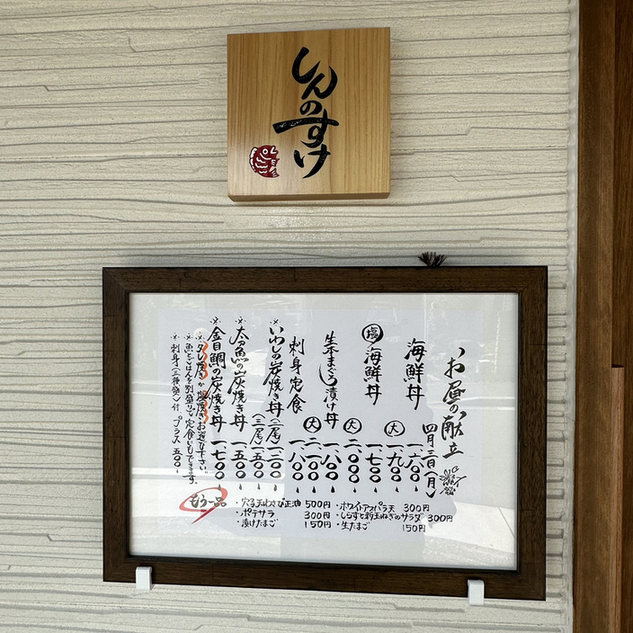 しんのすけ
お昼の献立
四月三日(月)
海鮮丼 一、六〇〇
大 一、九〇〇
塩 海鮮丼 一、七〇〇
大 二、〇〇〇
生本まぐろ漬け丼 一、八〇〇
大 二、一〇〇
刺身定食 一、八〇〇
※いわしの炭焼き丼 (二尾) 一、二〇〇
(三尾) 一、五〇〇
※太刀魚の炭焼き丼 一、五〇〇
※金目鯛の炭焼き丼 一、七〇〇
※タレ焼きか塩焼きお選び下さい。
※魚とごはんを別盛りで定食にもできます。
※刺身(三種盛)付 プラス 五〇〇
もう一品
・穴子玉わさび正油 500円
・ポテサラ 300円
・漬けたまご 150円
・ホワイトアスパラ天 300円
・しらすと新玉ねぎのサラダ 300円
・生たまご 150円